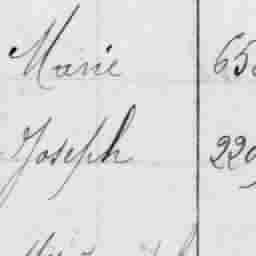 Marie 65
Joseph 229